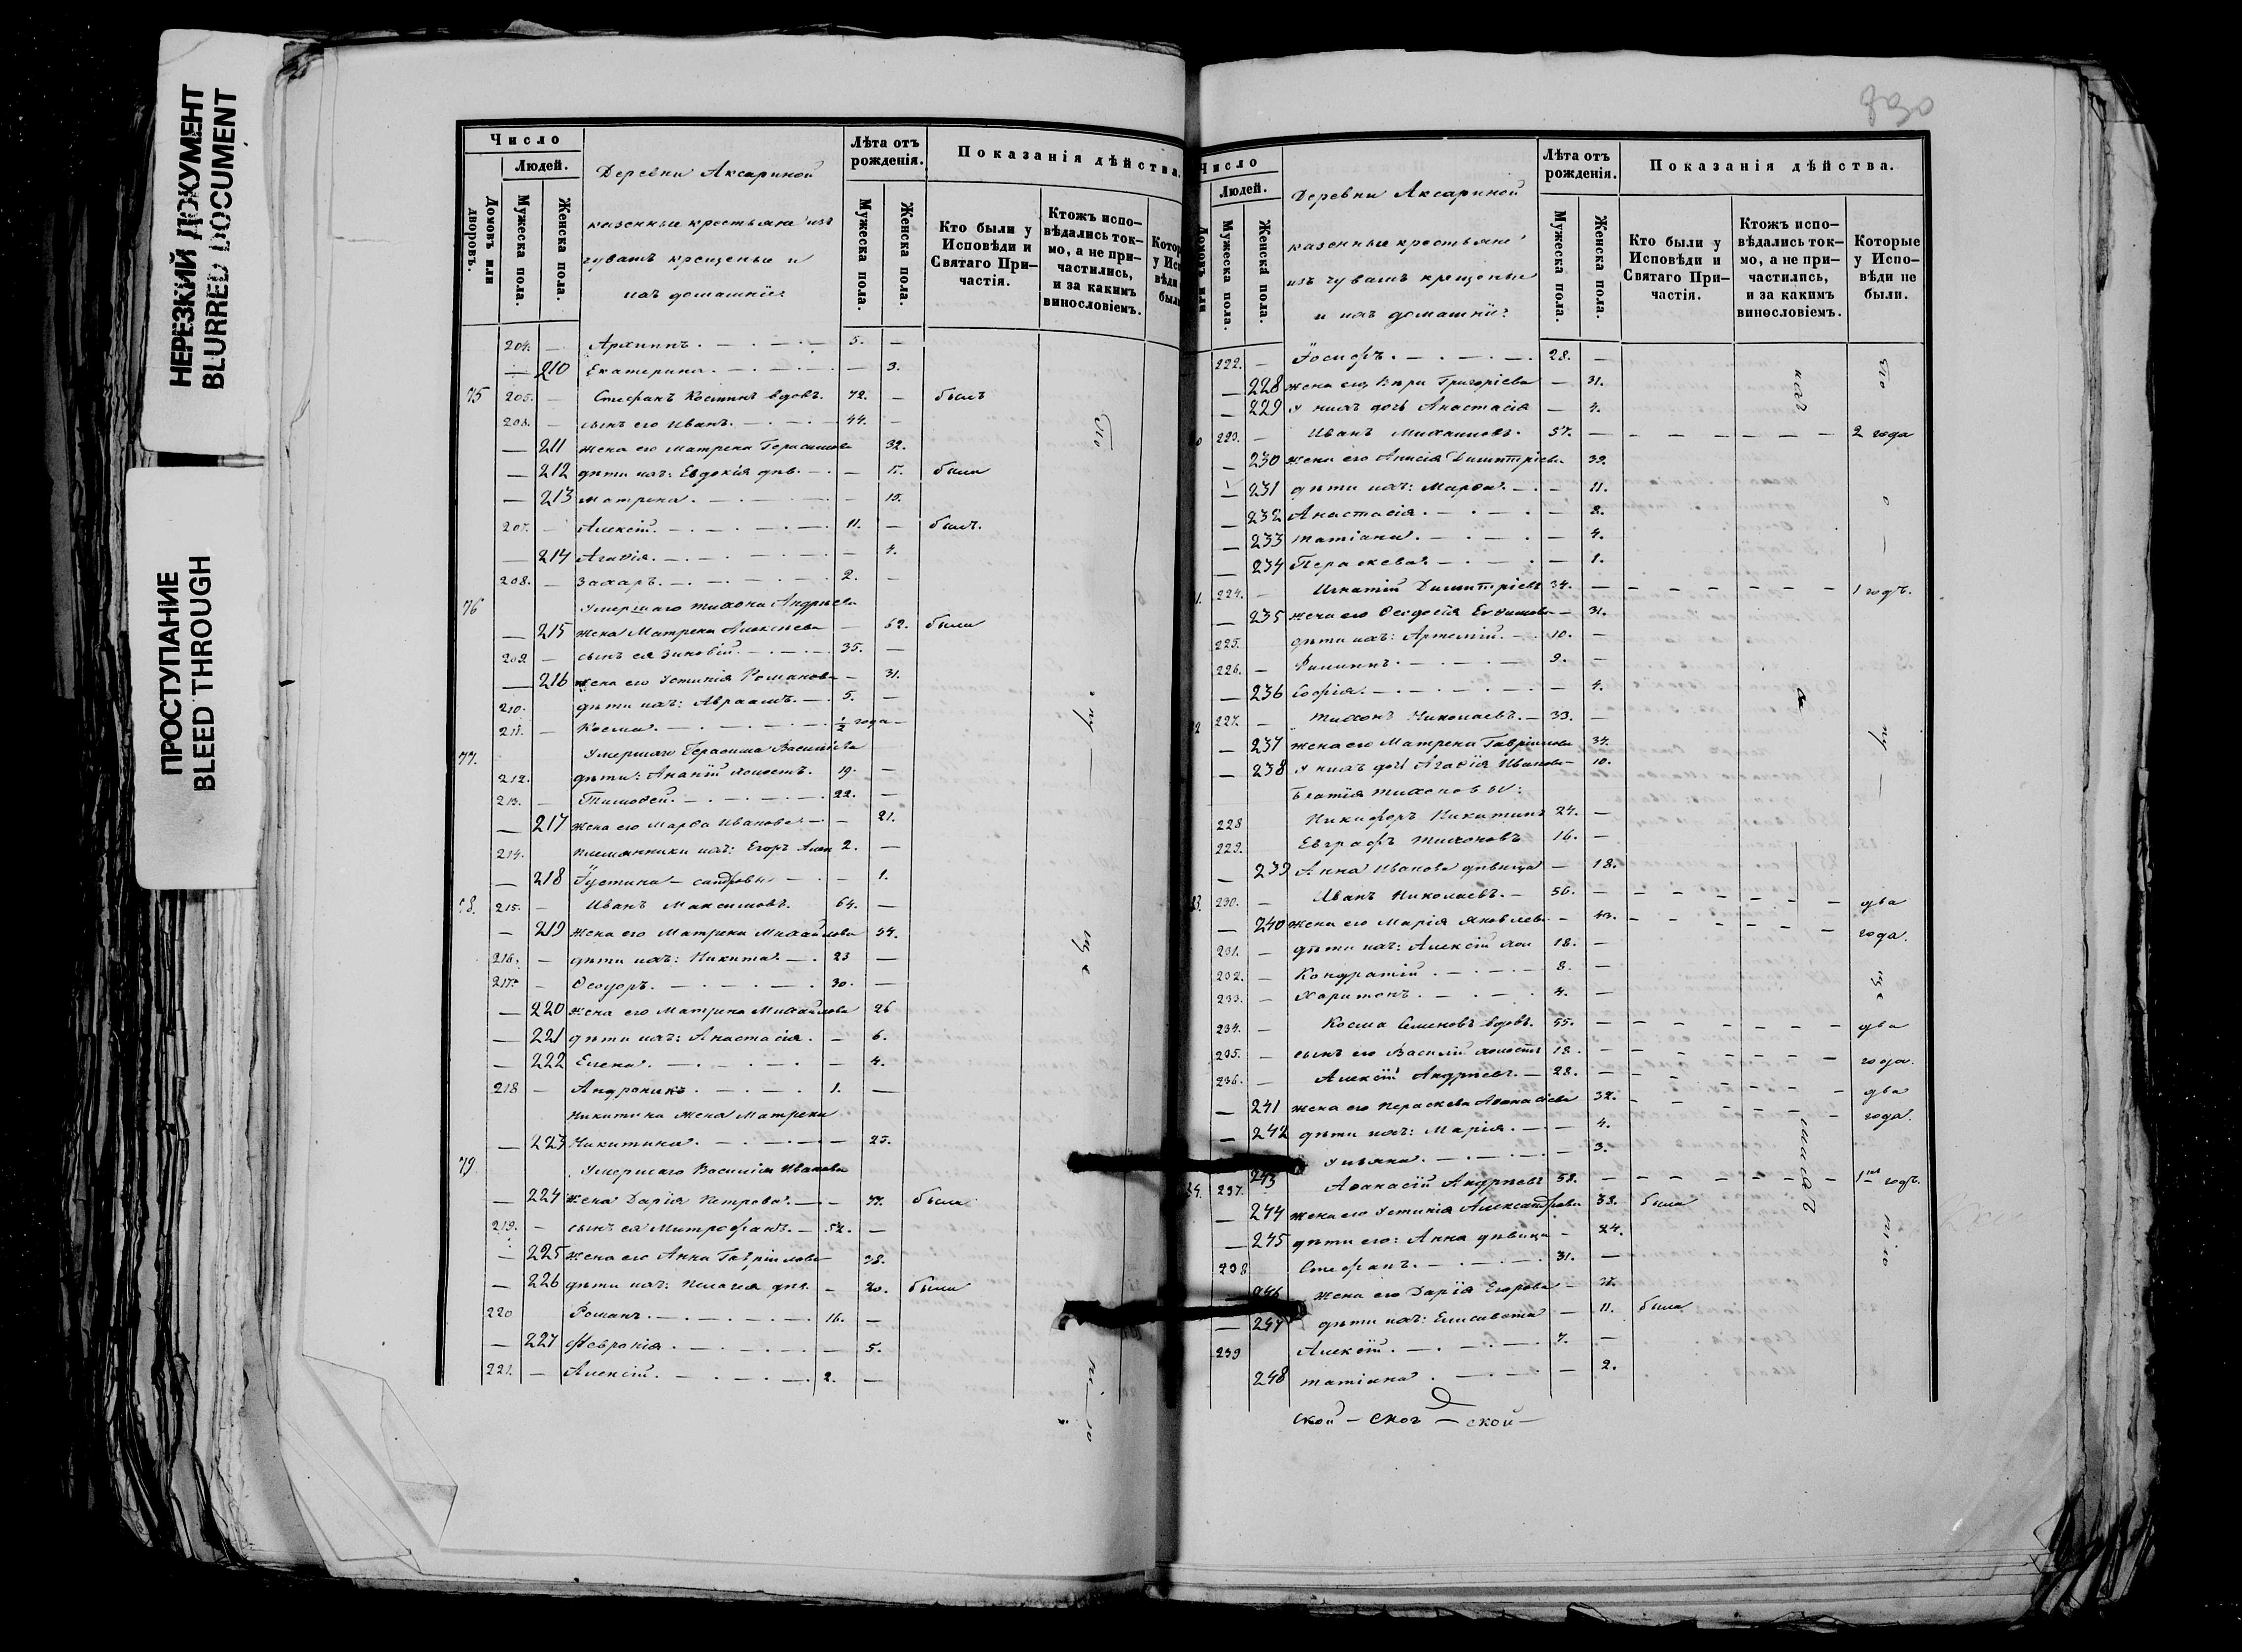 НЕРЕЗКИЙ ДОКУМЕНТ
BLURRED DOCUMENT
ПРОСТУПАНИЕ
BLEED THROUGH
Число
Людей.
Домовъ или дворовъ.
Мужеска пола.
Женска пола.
Деревни Аксариной
казенные крестьяне изъ
чувашъ крещеные и
ихъ домашніе
Лѣта отъ рожденія.
Мужеска пола.
Женска пола.
Показанія дѣйства.
Кто были у Исповѣди и Святаго Причастія.
Ктожъ исповѣдались токмо, а не причастились, и за какимъ винословіемъ.
204. — Архиппъ. 5. —
— 210 Екатерина. — 3.
75 205. — Стефанъ Костинъ вдовъ. 72. — былъ
206. — сынъ его Иванъ. 44. —
— 211 жена его Матрена Герасимова 32.
— 212 дѣти ихъ: Евдокія дѣв. — были
— 213 Матрена. — 15.
207. — Алексій. 11. — былъ.
— 214 Агафія. — 4.
208. — Захаръ. 2. —
76 Умершаго Тихона Андреева
— 215 жена Матрена Алексеева — 62. была
209 — сынъ ея Зиновій. 35. —
— 216 жена его Устинія Романова — 31.
210. дѣти ихъ: Авраамъ. 5. —
211. — Косма. 1/2 года —
77. Умершаго Герасима Васильева
212. дѣти: Ананій холостъ. 19. —
213. — Тимофей. 22. —
— 217 жена его Марфа Иванова — 21.
214. племянники ихъ: Егоръ Алек 2. —
— 218 Іустина — сандровы — 1.
78. 215. — Иванъ Максимовъ. 64. —
— 219 жена его Матрена Михайлова 54.
216. — дѣти ихъ: Никита. 23 —
217. — Ѳеодоръ. 30. —
— 220 жена его Матрена Михайлова 26
— 221 дѣти ихъ: Анастасія. — 6.
— 222 Елена. — 4.
218 — Андроникъ. 1. —
Никитина жена Матрена
— 223 Никитина. — 25.
79. Умершаго Василія Иванова
— 224 жена Дарія Петрова. — 77. была
219. — сынъ ея Митрофанъ. 52. —
— 225 жена его Анна Гавріилова
— 226 дѣти ихъ: Пелагея дѣв. — 20. были
220 Романъ. 16. —
— 227 Февронія. — 5.
221. — Алексій. 2. —
830
Число
Людей.
Домовъ или
Мужеска пола.
Женска пола.
Деревни Аксариной
казенные крестьяне
изъ чувашъ крещеные
и ихъ домашніе
Лѣта отъ рожденія.
Мужеска пола.
Женска пола.
Показанія дѣйства.
Кто были у Исповѣди и Святаго Причастія.
Ктожъ исповѣдались токмо, а не причастились, и за какимъ винословіемъ.
Которые у Исповѣди не были.
222. — Іосифъ. 28. —
— 228 жена его Вѣра Григорьева — 31.
— 229 у нихъ дочь Анастасія — 4.
223. — Иванъ Михаиловъ. 37. — 2 года
— 230 жена его Анисія Димитріева 39.
— 231 дѣти ихъ: Марфа. — 11.
— 232 Анастасія. — 8.
— 233 Татіана. — 4.
— 234 Параскева. — 1.
224. — Игнатій Димитріевъ 34. — 1 годъ.
— 235 жена его Ѳеодосія Евфимова — 31.
225. дѣти ихъ: Артемій. 10. —
226. — Филиппъ. 9. —
— 236 Софія. — 4.
227. — Тихонъ Николаевъ. 33. —
— 237 жена его Матрена Гавріилова 34.
— 238 у нихъ дочь Агафія Иванова — 10.
Братія Тихоновы:
228 Никифоръ Никитинъ 24. —
229. Евграфъ Тихоновъ 16. —
— 239 Анна Иванова дѣвица — 18.
230. — Иванъ Николаевъ. 56. — два
— 240 жена его Марія Яковлева — 43. года.
231. — дѣти ихъ: Алексій хол 18. —
232. — Кондратій. 8. —
233. — Харитонъ. 4. —
234. — Косма Семеновъ вдовъ. 55. — два
235. — сынъ его Василій холостъ 18. — года.
236. — Алексій Андреевъ. 28. — два
— 241 жена его Параскева Афанасіева 32. года.
— 242 дѣти ихъ: Марія. — 4.
243 Ульяна. — 3.
237. Афанасій Андреевъ 58. — 1 годъ.
— 244 жена его Устинія Александрова 53. была
— 245 дѣти его: Анна дѣвица — 24.
238 Стефанъ. 31. —
246 жена его Дарія Егорова —
— 247 дѣти ихъ: Елисавета — 11. была
239 Алексій. 7. —
248 Татіана. — 2.
ской — скої — ской —